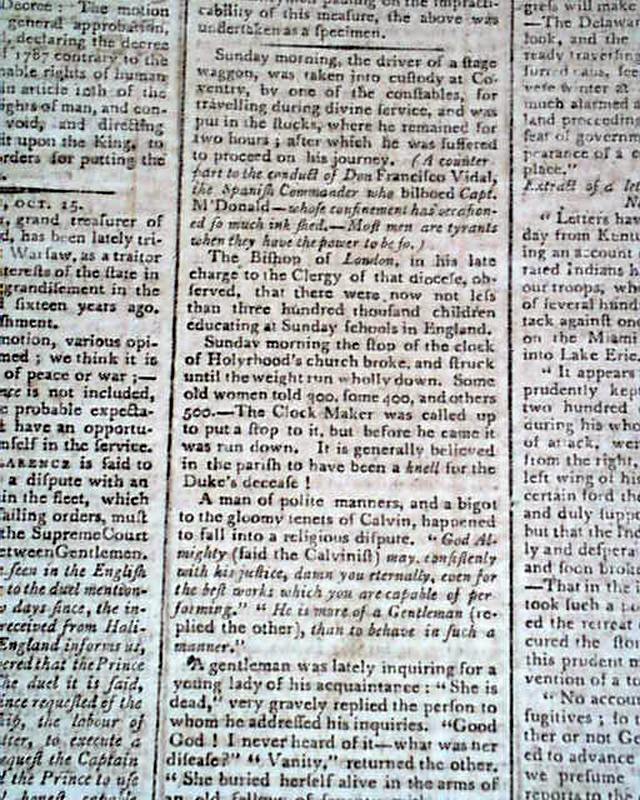 Decree: The motion
general approbation,
declaring the decree
1787 contrary to the
nable rights of human
in article 10th of the
ights of man, and con-
void, and directing
it upon the King, to
orders for putting the
, OCT. 15.
s, grand treasurer of
d, has been lately tri-
Warsaw, as a traitor
terests of the state in
ggrandisement in the
sixteen years ago.
shment.
motion, various opi-
med; we think it is
of peace or war;—
nce is not included,
e probable expecta-
t have an opportu-
mself in the service.
LARENCE is said to
a dispute with an
in the fleet, which
failing orders, must
the Supreme Court
etween Gentlemen.
seen in the English
to the duel mention-
w days since, the in-
received from Hali-
England informs us,
ered that the Prince
he duel it is said,
ince requested of the
ship, the labour of
lter, to execute a
equest the Captain
d the Prince to use
cability of this measure, the above was
undertaken as a specimen.
Sunday morning, the driver of a stage
waggon, was taken into custody at Co-
ventry, by one of the constables, for
travelling during divine service, and was
put in the stocks, where he remained for
two hours; after which he was suffered
to proceed on his journey. (A counter-
part to the conduct of Don Francisco Vidal,
the Spanish Commander who bilboed Capt.
M'Donald—whose confinement has occasion-
ed so much ink shed.—Most men are tyrants
when they have the power to be so.)
The Bishop of London, in his late
charge to the Clergy of that diocese, ob-
served, that there were now not less
than three hundred thousand children
educating at Sunday schools in England.
Sunday morning the stop of the clock
of Holyrhood's church broke, and struck
until the weight run wholly down. Some
old women told 300, some 400, and others
500.—The Clock Maker was called up
to put a stop to it, but before he came it
was run down. It is generally believed
in the parish to have been a knell for the
Duke's decease!
A man of polite manners, and a bigot
to the gloomy tenets of Calvin, happened
to fall into a religious dispute. "God Al-
mighty (said the Calvinist) may, consistenly
with his justice, damn you eternally, even for
the best works which you are capable of per-
forming." "He is more of a Gentleman (re-
plied the other), than to behave in such a
manner."
A gentleman was lately inquiring for a
young lady of his acquaintance: "She is
dead," very gravely replied the person to
whom he addressed his inquiries. "Good
God! I never heard of it—what was her
disease?" "Vanity," returned the other.
"She buried herself alive in the arms of
gress will make
—The Delawa
look, and the
ready traversing
much alarmed
land proceeding
fear of governm
pearance of a
place."
Extract of a let
"Letters hav
day from Kentu
ing an account
rated Indians
our troops, wh
of several hund
tack against on
on the Miami
into Lake Erie
"It appears
prudently kep
two hundred
during his who
of attack, we
from the right,
left wing of his
certain ford th
and duly supp
but that the In
ly and despera
and soon broke
—That in the
took such a
ed the retreat
cured the sto
this prudent m
vention of a to
"No accou
fugitives; so
ther or not Ge
ed to advance
we presume
reports to the